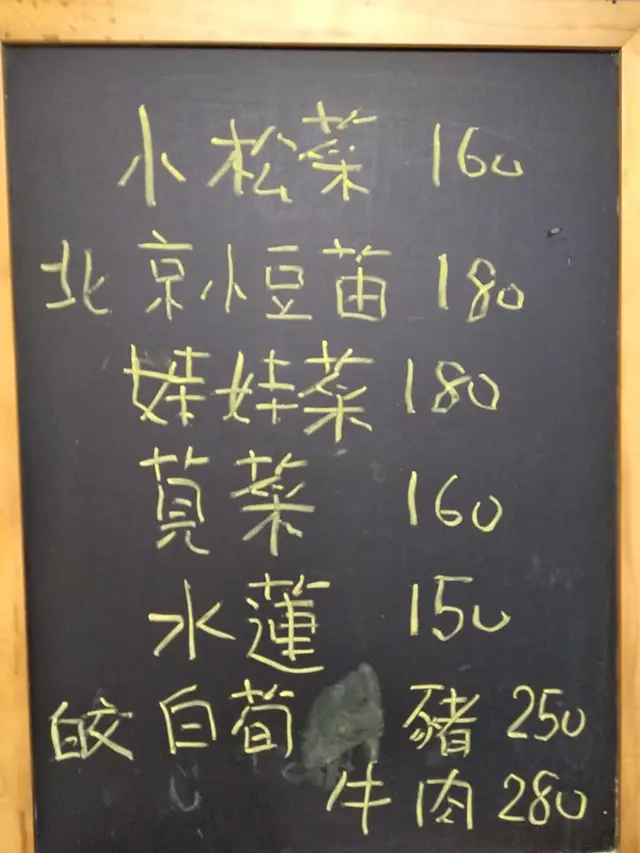 小松菜 160
北京小豆苗 180
娃娃菜 180
莧菜 160
水蓮 150
皎白荀 豬 250
牛肉 280